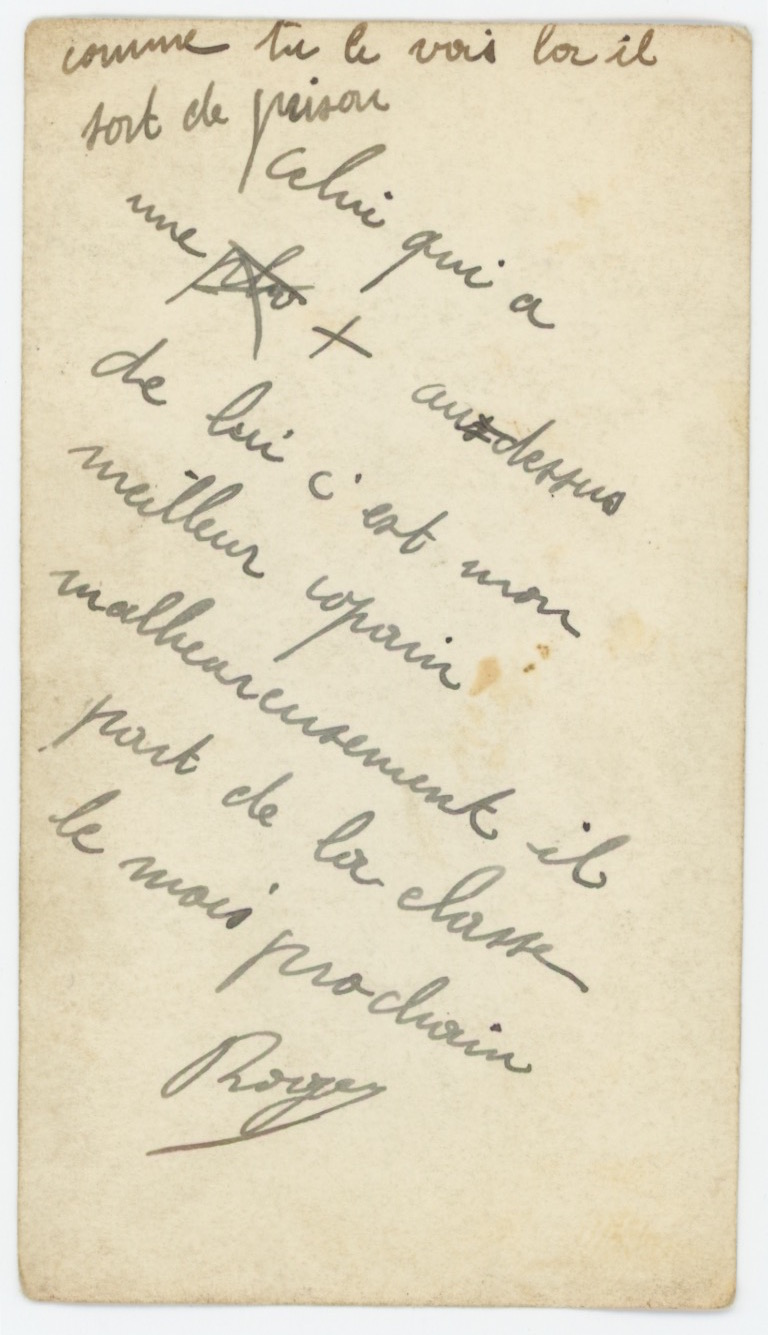 comme tu le vois la il
sort de prison
Celui qui a
une + au dessus
de lui c'est mon
meilleur copain
malheureusement il
part de la classe
le mois prochain
Roger